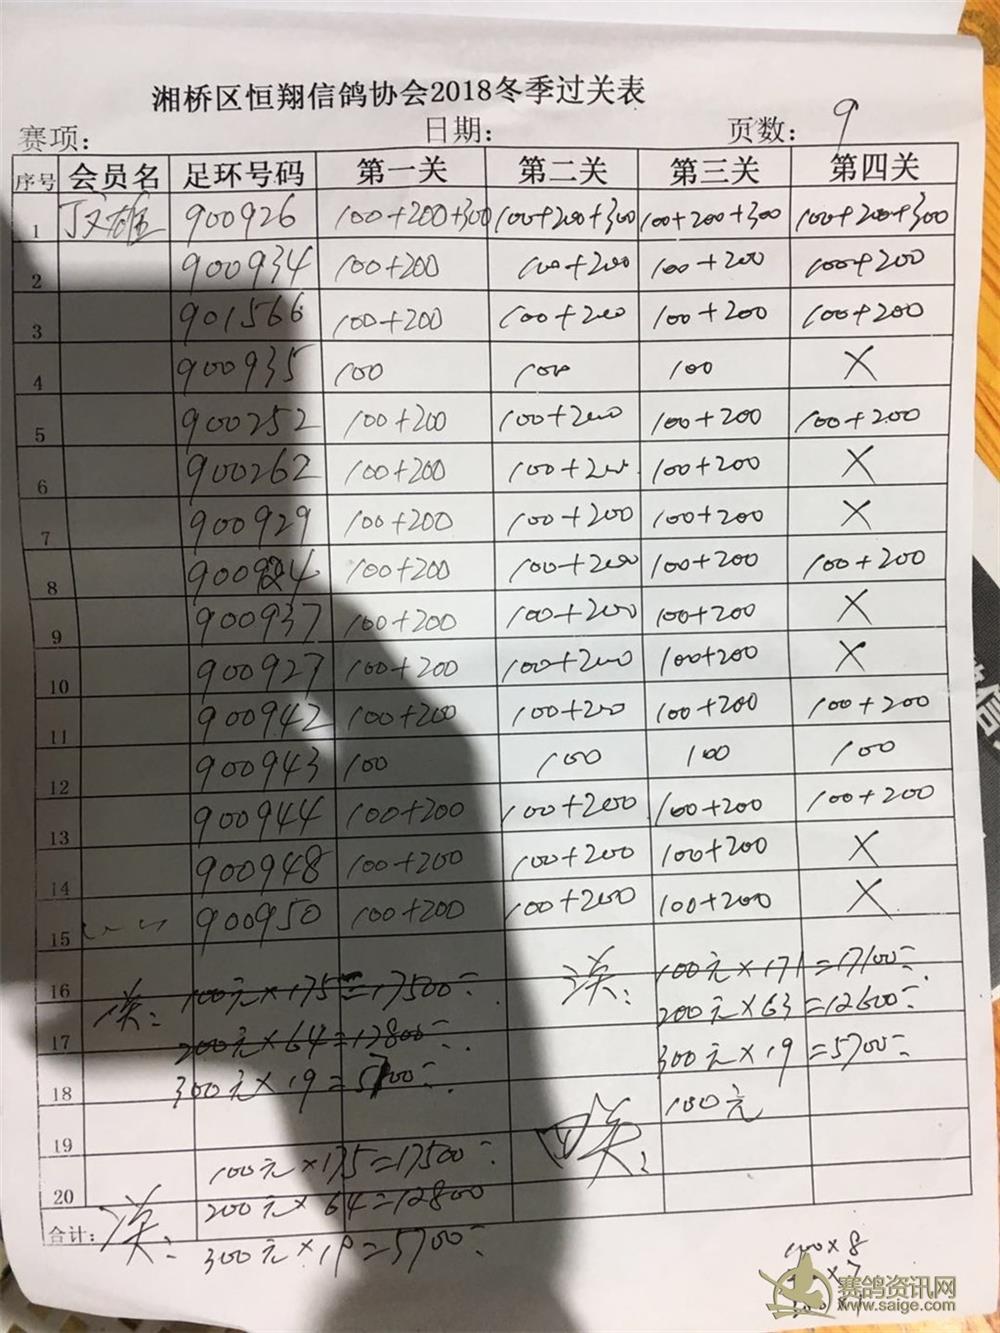 湘桥区恒翔信鸽协会2018冬季过关表
赛项： 日期： 页数： 9
序号 会员名 足环号码 第一关 第二关 第三关 第四关
1 丁文雄 900926 100+200+300 100+200+300 100+200+300 100+200+300
2 900934 100+200 100+200 100+200 100+200
3 901566 100+200 100+200 100+200 100+200
4 900935 100 100 100 X
5 900252 100+200 100+200 100+200 100+200
6 900262 100+200 100+200 100+200 X
7 900929 100+200 100+200 100+200 X
8 900924 100+200 100+200 100+200 100+200
9 900937 100+200 100+200 100+200 X
10 900927 100+200 100+200 100+200 X
11 900942 100+200 100+200 100+200 100+200
12 900943 100 100 100 100
13 900944 100+200 100+200 100+200 100+200
14 900948 100+200 100+200 100+200 X
15 900950 100+200 100+200 100+200 X
16 100元×175=17500 100元×171=17100
17 200元×64=12800 200元×63=12600
18 300元×19=5700 300元×19=5700
四关： 100元
19 100元×175=17500
20 200元×64=12800
合计： 300元×19=5700
100×8
×7
赛鸽资讯网
www.saige.com